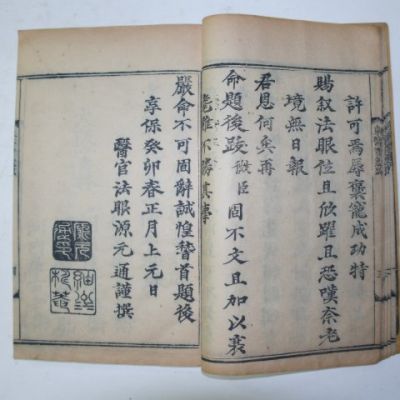 許可焉辱襃寵成功特
賜敘法眼位且欣躍且恐嘆奈老
境無日報
君恩何矣再
命題後跋微臣固不文且加以衰
嚴命不可固辭誠惶稽首題後
享保癸卯春正月上元日
醫官法眼源元通謹撰